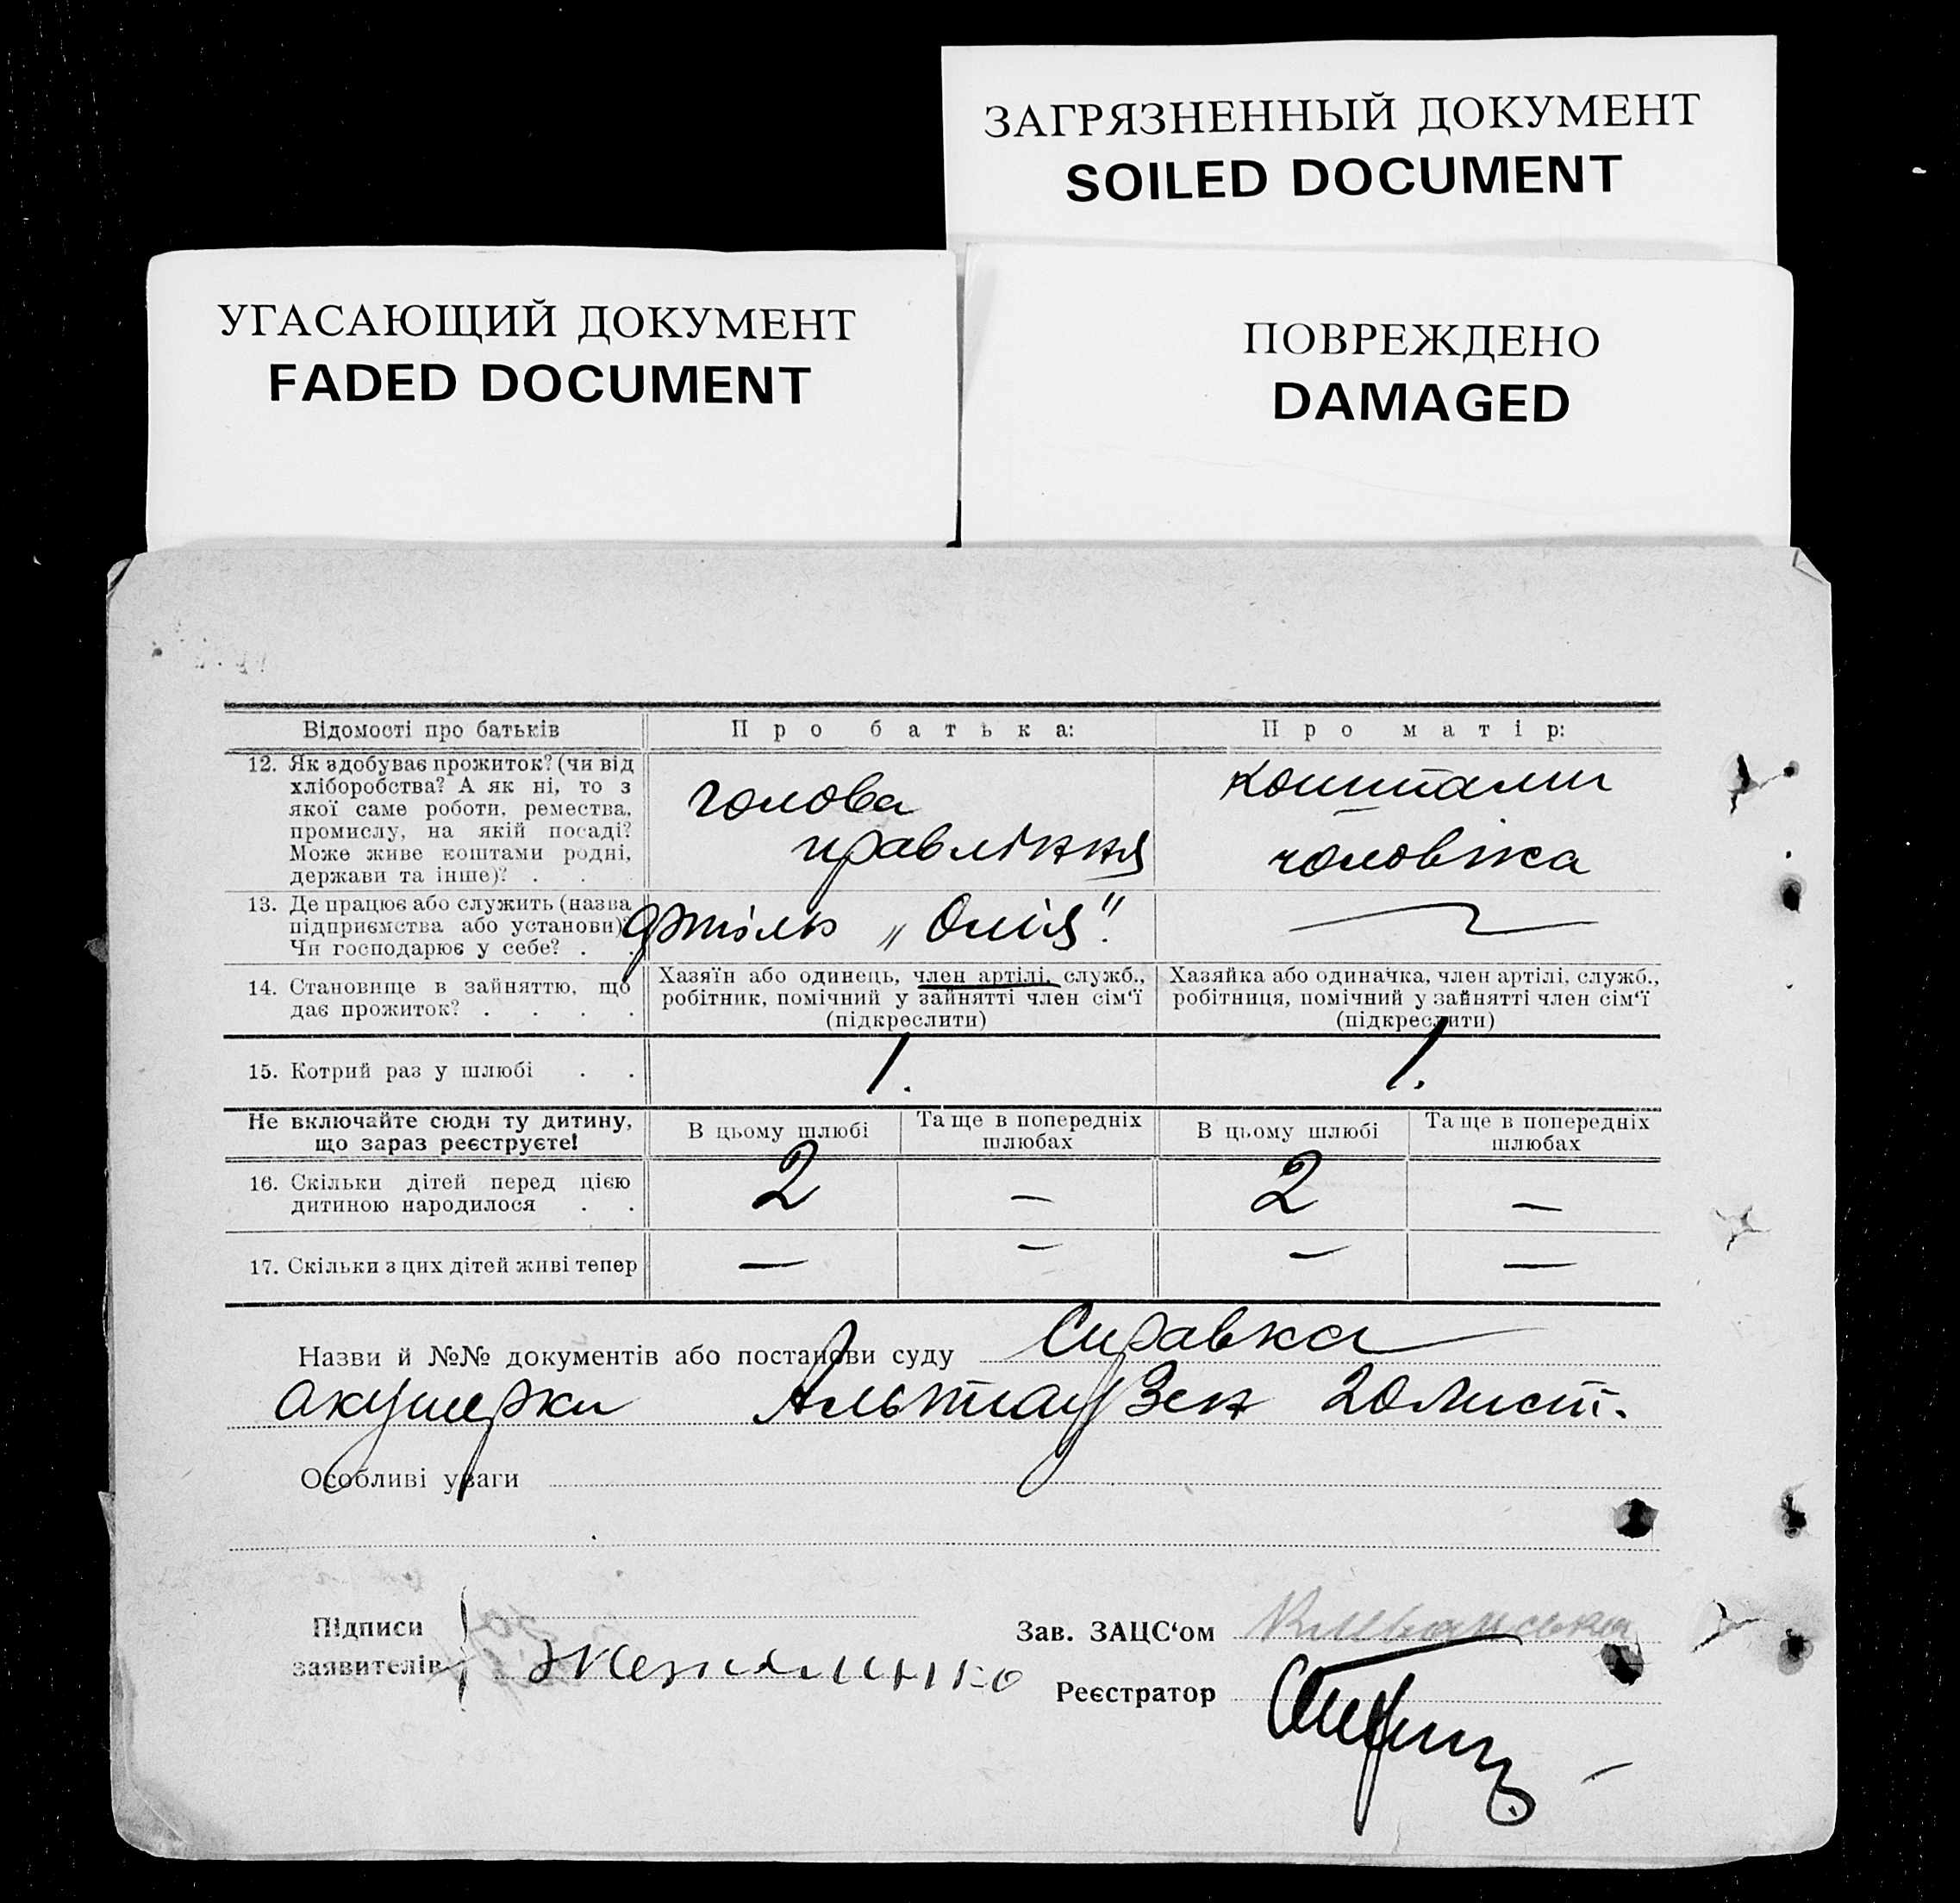 ЗАГРЯЗНЕННЫЙ ДОКУМЕНТ
SOILED DOCUMENT
УГАСАЮЩИЙ ДОКУМЕНТ
FADED DOCUMENT
ПОВРЕЖДЕНО
DAMAGED
Відомості про батьків
Про батька:
Про матір:
12. Як здобуває прожиток? (чи від
хліборобства? А як ні, то з
якої саме роботи, ремества,
промислу, на якій посаді?
Може живе коштами родні,
держави та інше)? . .
голова
правління
коштами
чоловіка
13. Де працює або служить (назва
підприємства або установи)?
Чи господарює у себе? . .
артіль „Олія".
14. Становище в зайняттю, що
дає прожиток? . . . .
Хазяїн або одинець, член артілі, служб.,
робітник, помічний у зайнятті член сім‘ї
(підкреслити)
Хазяйка або одиначка, член артілі, служб.,
робітниця, помічний у зайнятті член сім‘ї
(підкреслити)
15. Котрий раз у шлюбі . .
1.
1.
Не включайте сюди ту дитину,
що зараз реєструєте!
В цьому шлюбі
Та ще в попередніх
шлюбах
В цьому шлюбі
Та ще в попередніх
шлюбах
16. Скільки дітей перед цією
дитиною народилося . .
2 — 2 —
17. Скільки з цих дітей живі тепер
— — — —
Назви й №№ документів або постанови суду Справка
акушерки Альтгаузен 20 лист.
Особливі уваги
Підписи
заявителів
Зав. ЗАЦС‘ом
Реєстратор